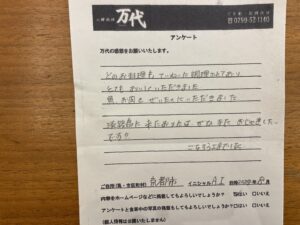 万代
ご予約・お問合せ
0799-52-1140
アンケート
万代の感想をお願いいたします。
どのお料理も ていねいに調理されており
とても おいしくいただきました
魚 お肉も ぜいたくにいただきました
淡路島に 来た おりには ぜひ また おじゃましたい
です♡
ごちそうさまでした
ご住所(県・市区町村) 京都市 イニシャル A I
内容をホームページなどに掲載してもよろしいでしょうか? はい □いいえ
アンケートと食事中の写真の掲載もしてもよろしいでしょうか? □はい □いいえ
(個人情報は公開いたしません)